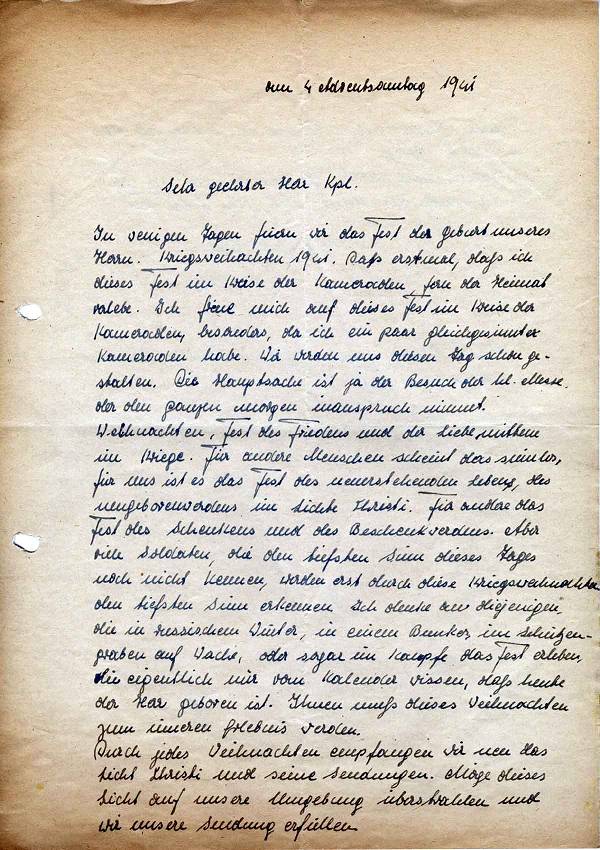 am 4 Adventsonntag 1941
Sehr geehrter Herr Kpl.
In wenigen Tagen feiern wir das Fest der Geburt unseres
Herrn. Kriegsweihnachten 1941. Das erstmal, daß ich
dieses Fest im Kreise der Kameraden, fern der Heimat
verlebe. Ich freue mich auf dieses Fest im Kreise der
Kameraden, besonders, da ich ein paar gleichgesinnter
Kameraden habe. Wir werden uns diesen Tag schön ge-
stalten. Die Hauptsache ist ja der Besuch der hl. Messe,
der den ganzen morgen inanspruch nimmt.
Weihnachten, Fest des Friedens und der Liebe, mitten
im Kriege. Für andere Menschen scheint das sinnlos,
für uns ist es das Fest des neuerstehenden Lebens, des
neugeborenwerdens im Lichte Christi. Für andere das
Fest des Schenkens und des Beschenkwerdens. Aber
viele Soldaten, die den tiefsten Sinn dieses Tages
noch nicht kennen, werden erst durch diese Kriegsweihnachten
den tiefsten Sinn erkennen. Ich denke an diejenigen,
die in russischem Winter, in einem Bunker, im Schützen-
graben auf Wache, oder sogar im Kampfe das Fest erleben,
die eigentlich nur vom Kalender wissen, daß heute
der Herr geboren ist. Ihnen muß dieses Weihnachten
zum inneren Erlebnis werden.
Durch jedes Weihnachten empfangen wir neu das
Licht Christi und seine Sendungen. Möge dieses
Licht auf unsere Umgebung überstrahlen und
wir unsere Sendung erfüllen